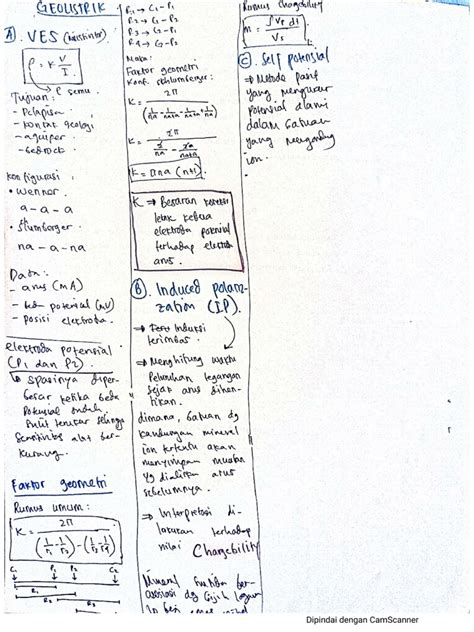 GEOLISTRIK
A. VES (Resistivitas)
ρ = K V/I
↳ ρ semu.
Tujuan :
- Pelapisan
- kontak geologi
- aquiper
- bedrock.
konfigurasi :
• Wenner.
a - a - a
• Slumberger.
na - a - na
Data :
- arus (mA)
- potensial (mV)
- posisi elektroda.
elektroda potensial
(P1 dan P2).
↳ spasinya diper-
besar ketika beda
Potensial rendah.
sehingga
Sensitivitas alat ber-
kurang.
Faktor geometri
Rumus umum :
K = 2π / ((1/r1 - 1/r2) - (1/r3 - 1/r4))
C1 P1 P2 C2
R1
R2
R3
R1 → C1 - P1
R2 → C2 - P1
R3 → C1 - P2
R4 → C2 - P2
Maka :
Faktor geometri
Konf. Schlumberger :
K = 2π
K = 2π
K = πna (n+1)
K ⇒ Besaran koreksi
letak kedua
elektroda potensial
terhadap elektroda
arus.
B. Induced polari-
zation (IP).
⇒ Induksi
terimbas.
⇒ Menghitung waktu
Peluruhan tegangan
sejak arus dihen-
tikan.
dimana, batuan dg
kandungan mineral
ion tertentu akan
menyimpan muatan
yg dialirkan arus
sebelumnya.
⇒ Interpretasi di-
lakukan terhadap
nilai Chargebility
Mineral ber-
asosiasi dg bijih logam
Rumus Chargebility
m = ∫Vs dt / Vs
C. Self potensial
⇒ Metode pasif
yang mengukur
Potensial alami
dalam batuan
yang mengandung
ion.
Dipindai dengan CamScanner